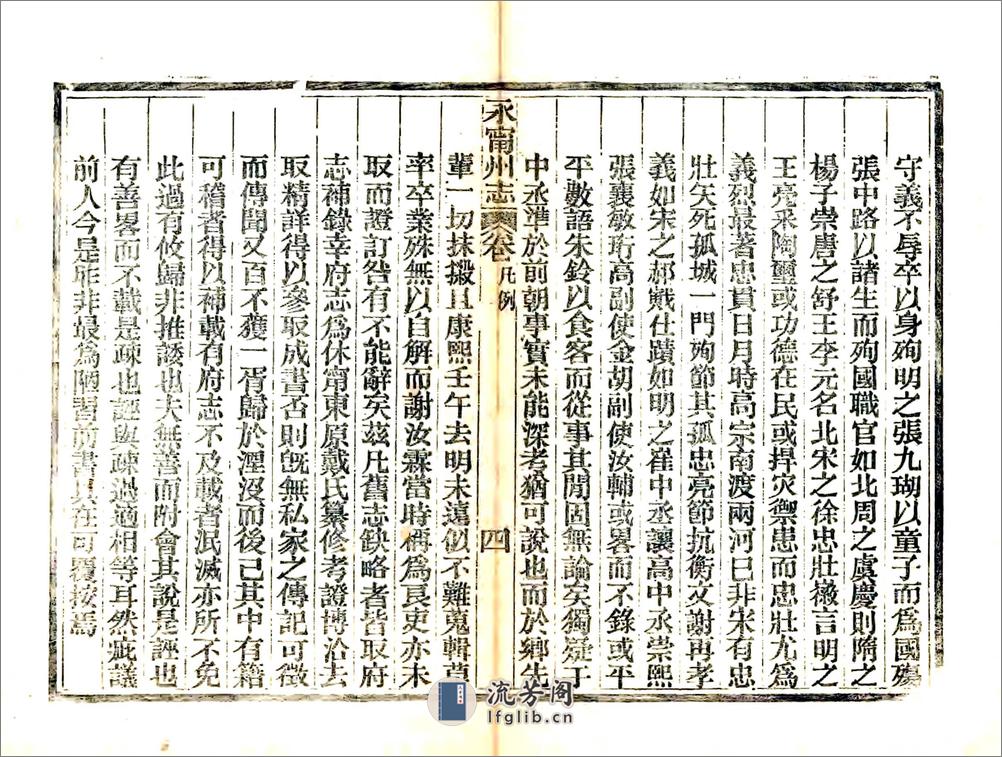 守義不辱卒以身殉明之張九瑚以童子而爲國殤
張中路以諸生而殉國職官如北周之虞慶則隋之
楊子崇唐之舒王李元名北宋之徐忠壯徽言明之
王亮采陶璽或功德在民或捍灾禦患而忠壯尤爲
義烈最著忠貫日月時高宗南渡兩河已非宋有忠
壯矢死孤城一門殉節其孤忠亮節抗衡文謝再考
義如宋之郝戭仕蹟如明之崔中丞讓高中丞崇熙
張襄敏珩高副使金胡副使汝輔或畧而不錄或平
平數語朱鈴以食客而從事其閒固無論矣獨疑丁
中丞準於前朝事實未能深考猶可說也而於鄉先
永甯州志
卷 凡例
四
輩一切抹摋且康熙壬午去明未遠似不難蒐輯草
率卒業殊無以自解而謝汝霖當時稱爲良吏亦未
取而證訂咎有不能辭矣茲凡舊志缺略者皆取府
志補錄幸府志爲休甯東原戴氏纂修考證博洽去
取精詳得以參取成書否則旣無私家之傳記可徵
而傳聞又百不獲一胥歸於湮沒而後已其中有籍
可稽者得以補載有府志不及載者泯滅亦所不免
此過有攸歸非推諉也夫無善而附會其說是誣也
有善畧而不載是疎也誣與疎過適相等耳然疵議
前人今是昨非最爲陋習前書具在可覆按焉
流芳阁
lfglib.cn